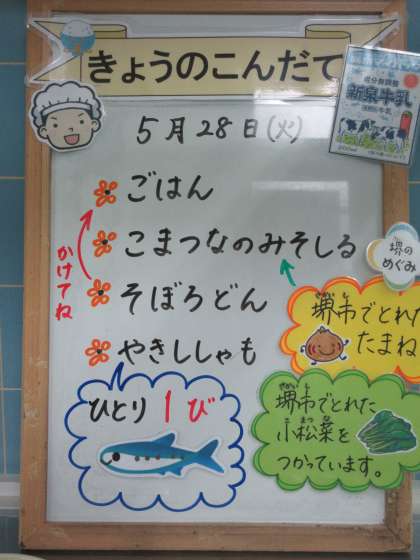 きょうのこんだて
成分無調整
新泉牛乳
5月28日(火)
ごはん
こまつなのみそしる
そぼろどん
やきししゃも
かけてね
堺の
めぐみ
堺市でとれた
たまね
ひとり1び
堺市でとれた
小松菜を
つかっています。